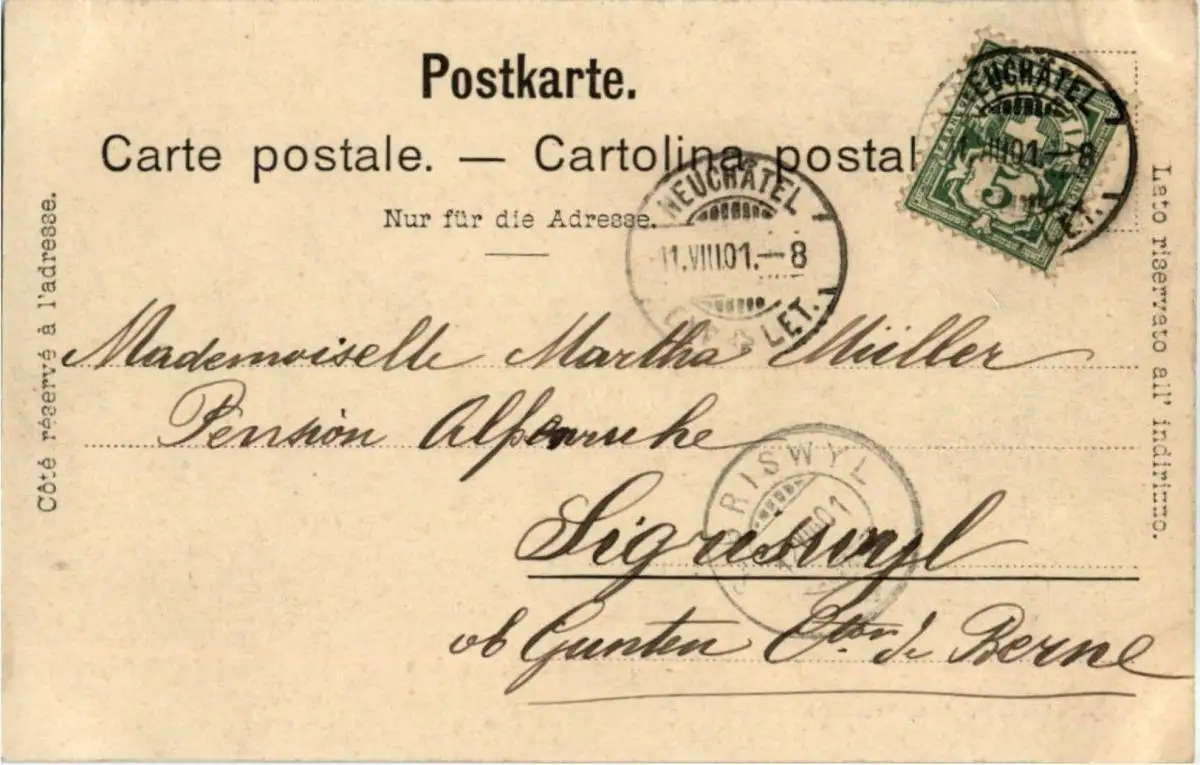 Postkarte.
Carte postale. — Cartolina postal
Nur für die Adresse.
Côté réservé à l'adresse.
Lato riservato all' indirizzo.
NEUCHÂTEL
11.VIII.01.—8
LET.
5
NEUCHÂTEL
11.VIII.01.—8
LET.
Mademoiselle Martha Müller
Pension Alpenruhe
RISWYL
VIII 01
Sigriswyl
ob Gunten Cton de Berne